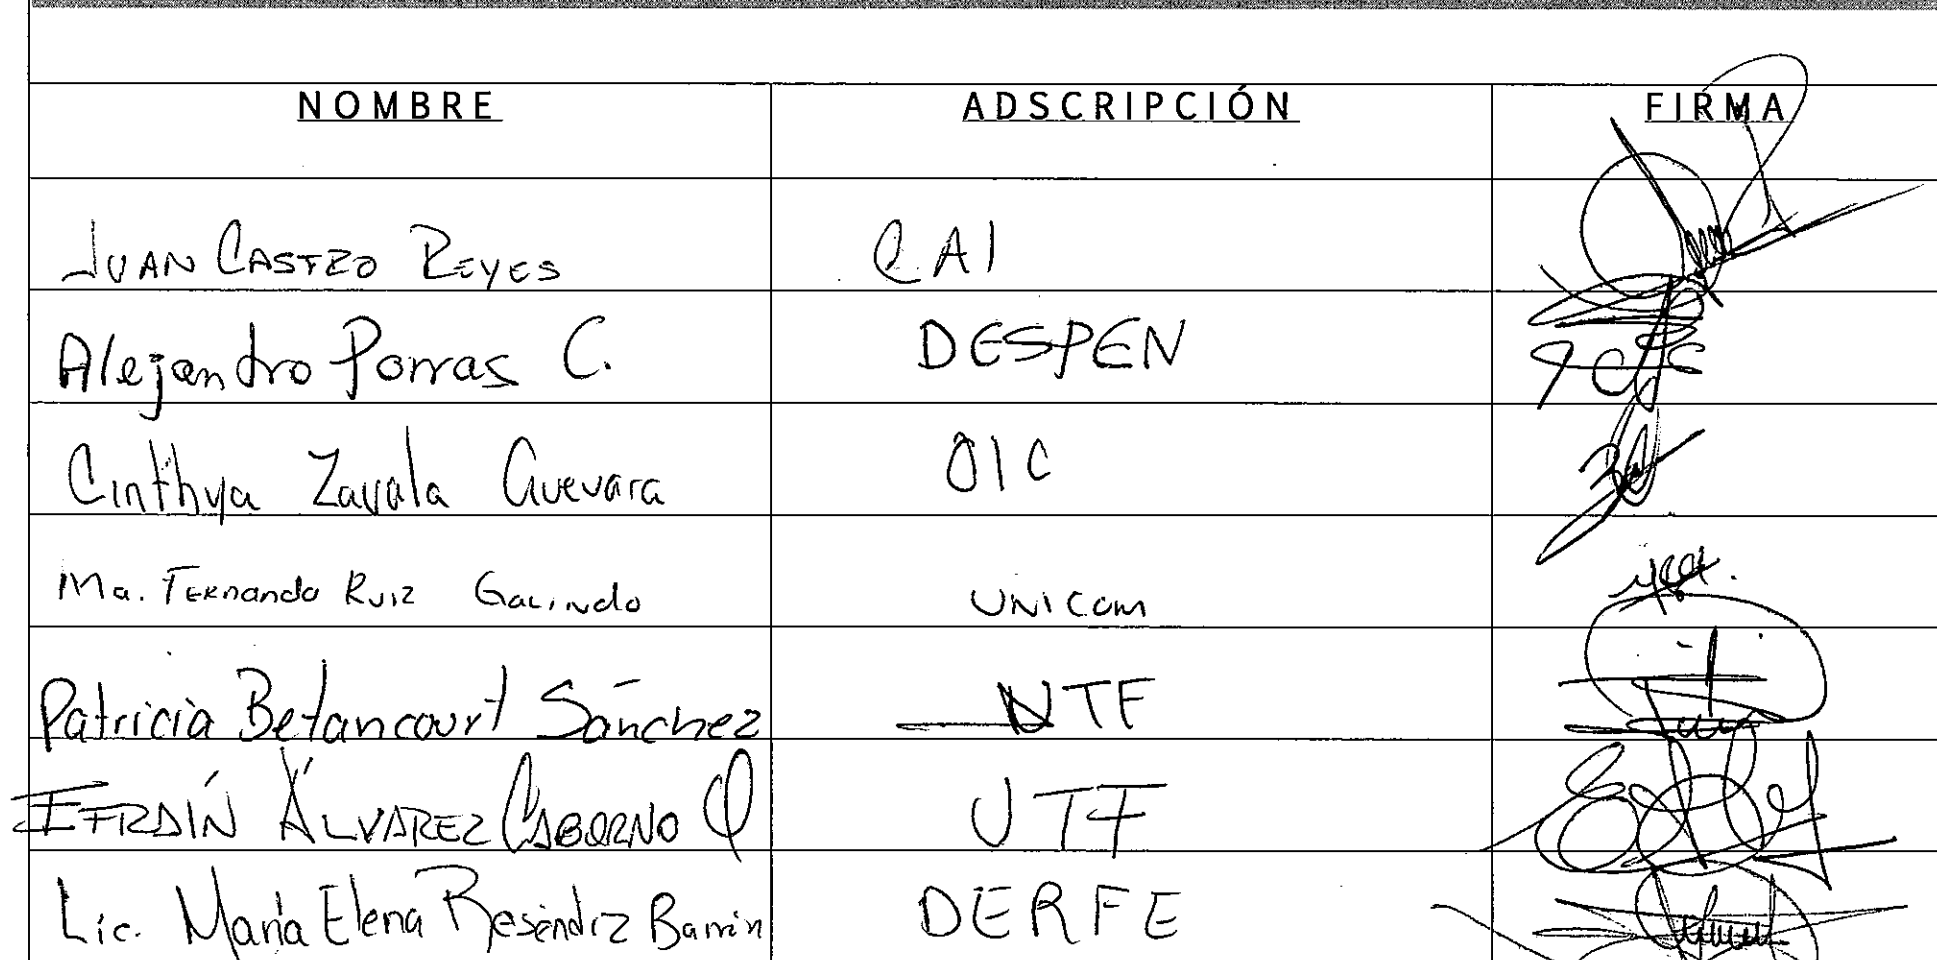 NOMBRE ADSCRIPCIÓN FIRMA
JUAN CASTRO REYES CAI
Alejandro Porras C. DESPEN
Cinthya Zavala Guevara OIC
Ma. Fernanda Ruiz Galindo UNICOM
Patricia Betancourt Sánchez UTF
EFRAÍN ÁLVAREZ UTF
Lic. María Elena Reséndiz DERFE